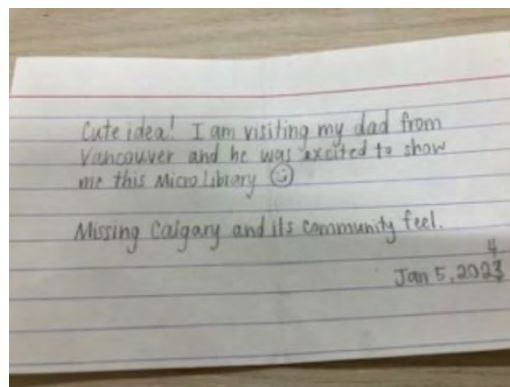 Cute idea! I am visiting my dad from
Vancouver and he was excited to show
me this Micro Library ☺
Missing Calgary and its community feel.
4
Jan 5, 2023